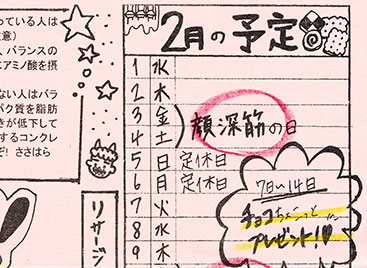 っている人は
意）
、バランスの
ニアミノ酸を摂
ない人はバラ
パク質を脂肪
きが低下して
するコンクレ
ぞ！ささはら
リサージ
2月の予定
1 水
2 木
3 金
4 土
顔深筋の日
5 日 定休日
6 月 定休日
7 火
8 水
9 木
7日〜14日
チョコちょこっと
プレゼント！
の